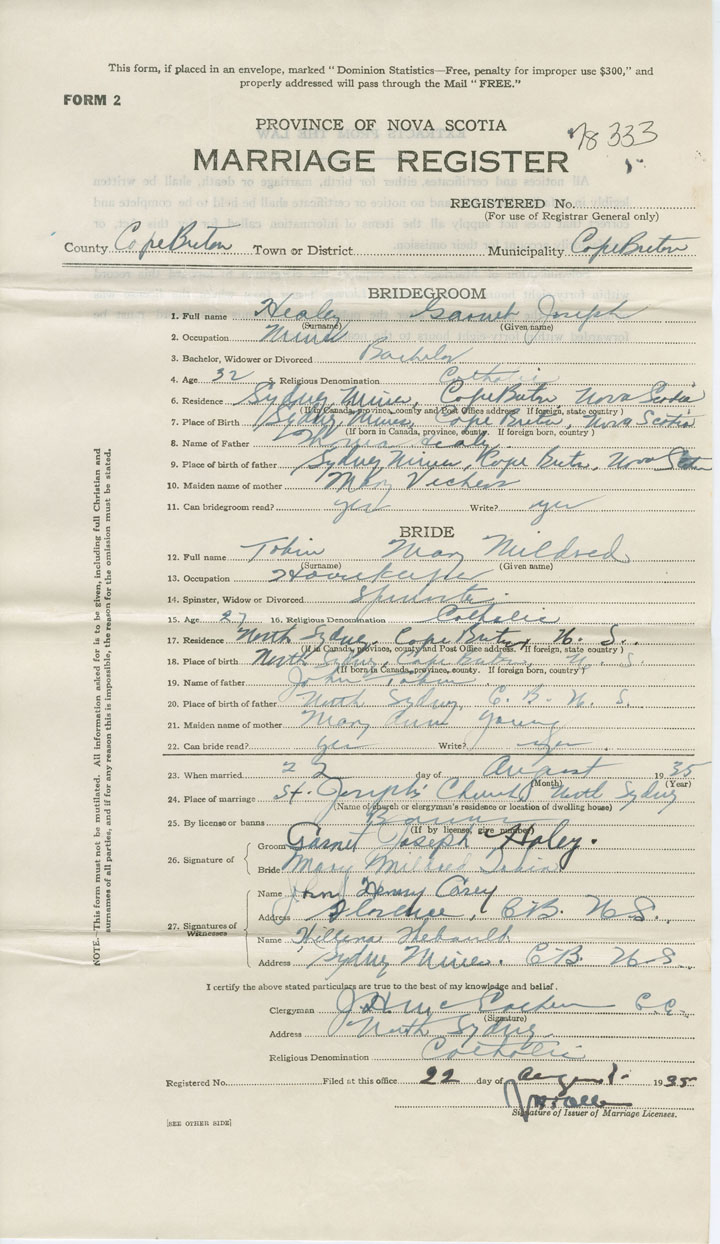 This form, if placed in an envelope, marked "Dominion Statistics—Free, penalty for improper use $300," and
properly addressed will pass through the Mail "FREE."
FORM 2
PROVINCE OF NOVA SCOTIA
78 333
MARRIAGE REGISTER
REGISTERED No.
(For use of Registrar General only)
County Cape Breton Town or District Municipality Cape Breton
BRIDEGROOM
1. Full name Healey Garnet Joseph
(Surname) (Given name)
2. Occupation Miner
3. Bachelor, Widower or Divorced Bachelor
4. Age 32 5. Religious Denomination Catholic
6. Residence Sydney Mines, Cape Breton, Nova Scotia
(If in Canada, province, county and Post Office address. If foreign, state country)
7. Place of Birth Sydney Mines, Cape Breton, Nova Scotia
(If born in Canada, province, county. If foreign born, country)
8. Name of Father Healy
9. Place of birth of father Sydney Mines, Cape Breton, Nova Scotia
10. Maiden name of mother Mary
11. Can bridegroom read? yes Write? yes
BRIDE
12. Full name Tobin Mary Mildred
(Surname) (Given name)
13. Occupation Housekeeper
14. Spinster, Widow or Divorced Spinster
15. Age 27 16. Religious Denomination Catholic
17. Residence North Sydney, Cape Breton N. S.
(If in Canada, province, county and Post Office address. If foreign, state country)
18. Place of birth North Sydney, Cape Breton, N. S.
(If born in Canada, province, county. If foreign born, country)
19. Name of father John Tobin
20. Place of birth of father North Sydney, C. B. N. S.
21. Maiden name of mother Mary Ann Young
22. Can bride read? yes Write? yes
23. When married 22 day of August 1935
(Month) (Year)
24. Place of marriage St. Joseph's Church North Sydney
(Name of church or clergyman's residence or location of dwelling house)
25. By license or banns Banns
(If by license, give number)
26. Signature of
Groom Garnet Joseph Haley.
Bride Mary Mildred Tobin
27. Signatures of Witnesses
Name John Henry Carey
Address Florence, C.B. N.S.
Name Hebault
Address Sydney Mines. C.B. N.S.
I certify the above stated particulars are true to the best of my knowledge and belief.
Clergyman C.C.
(Signature)
Address North Sydney
Religious Denomination Catholic
Registered No. Filed at this office 22 day of August 1935
Signature of Issuer of Marriage Licenses.
[SEE OTHER SIDE]
NOTE—This form must not be mutilated. All information asked for is to be given, including full Christian and
surnames of all parties, and if for any reason this is impossible, the reason for the omission must be stated.